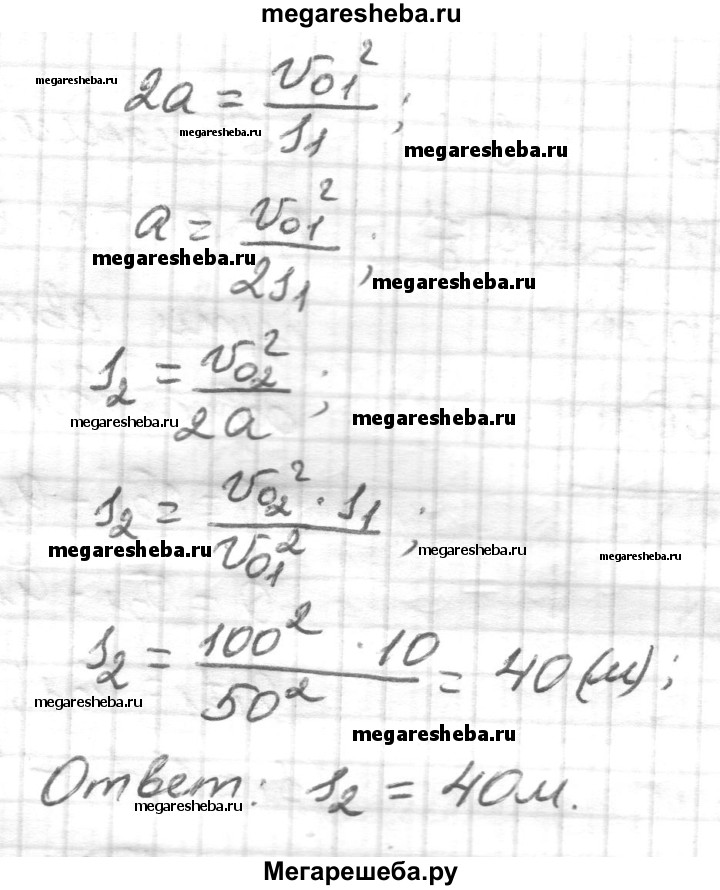 megaresheba.ru
2a = v₀₁² / s₁ ;
megaresheba.ru
megaresheba.ru
megaresheba.ru
a = v₀₁² / 2s₁ ;
megaresheba.ru
megaresheba.ru
s₂ = v₀₂² / 2a ;
megaresheba.ru
megaresheba.ru
s₂ = v₀₂² · s₁ / v₀₁² ;
megaresheba.ru
megaresheba.ru
megaresheba.ru
s₂ = 100² · 10 / 50² = 40 (м);
megaresheba.ru
megaresheba.ru
Ответ: s₂ = 40м.
megaresheba.ru
Мегарешеба.ру